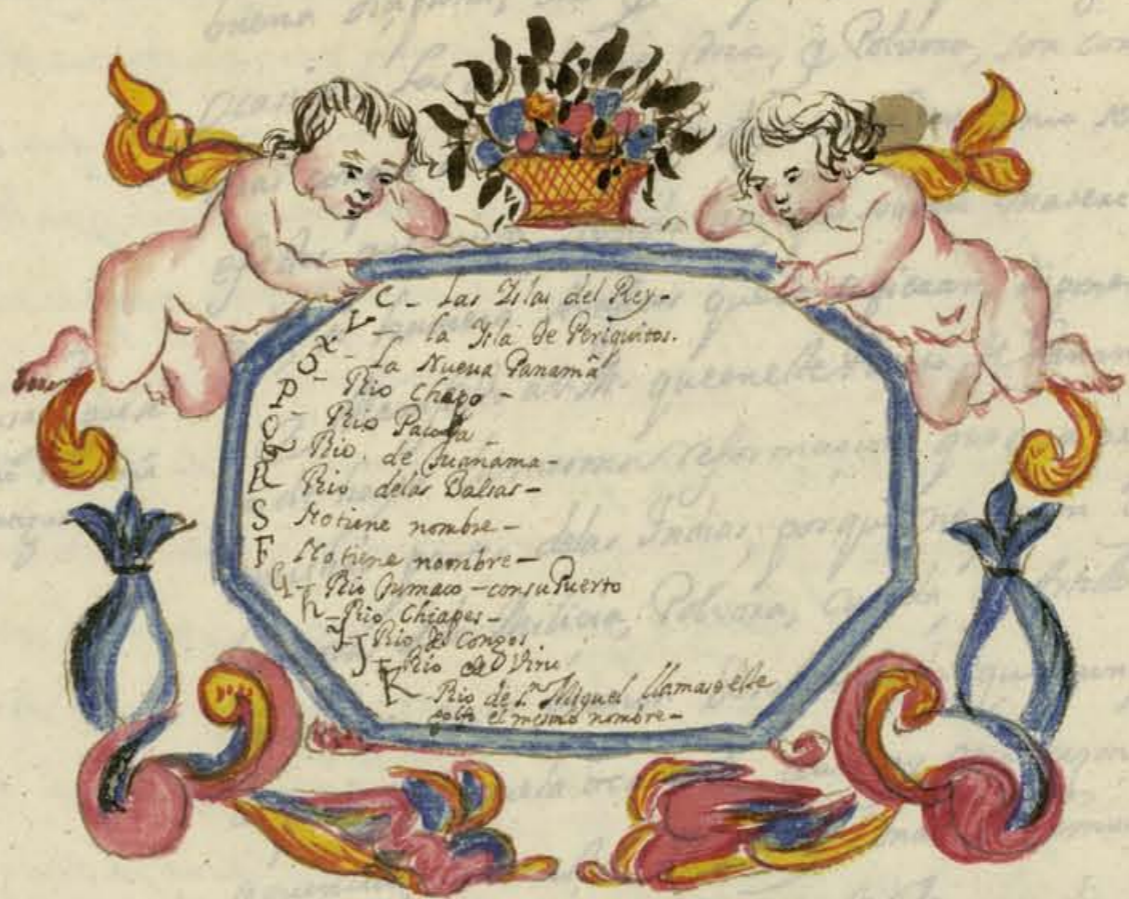 C - Las Yslas del Rey -
V - la Ysla de Periquitos.
X - La Nueva Panamâ
O - Rio Chepo -
P - Rio Pacora
Q - Rio de Juanama -
R - Rio delas Balsas -
S No tiene nombre -
F No tiene nombre -
G - Rio Jumaco - consu Puerto
h - Rio Chiapes -
Y - Rio de Congos
J - Rio
K - Rio de Sn Miguel llamase este
golfo el mesmo nombre -